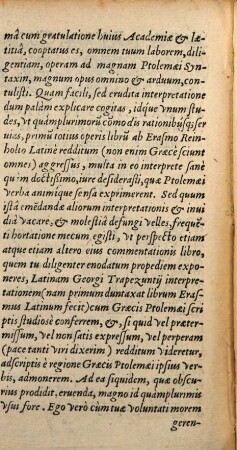 mâ cum gratulatione huius Academiæ & læ-
titiâ, cooptatus es, omnem tuum laborem, dili-
gentiam, operam ad magnam Ptolemæi Syn-
taxin, magnum opus omnino & arduum, con-
tulisti. Quam facili, sed erudita interpretatione
dum palàm explicare cogitas, idque vnum stu-
des, vt quàmplurimorū cōmodis rationibusq; ser
uias, primū totius operis librū ab Erasmo Rein-
holio Latinè redditum (non enim Græcè sciunt
omnes) aggressus, multa in eo interprete sanè
quàm doctissimo, iure desiderasti, quæ Ptolemæi
verba animique sensa exprimerent. Sed quum
istâ emēdandæ aliorum interpretationis & inui
diâ vacare, & molestiâ defungi velles, frequēti
hortatione mecum egisti, vt perspecto etiam
atque etiam altero eius commentationis libro,
quem tu diligenter enodatum propediem expo-
neres, Latinam Georgi Trapezuntij interpre-
tationem (nam primum duntaxat librum Eras-
mus Latinum fecit) cum Græcis Ptolemæi scri
ptis studiosè conferrem, &, si quid vel præter-
missum, vel non satis expressum, vel perperam
(pace tanti viri dixerim) redditum videretur,
adscriptis è regione Græcis Ptolemæi ipsius ver-
bis, admonerem. Ad ea siquidem, quæ obscu-
rius prodidit, eruenda, magno id quamplurimis
vsui fore. Ego verò cùm tuæ voluntati morem
geren-